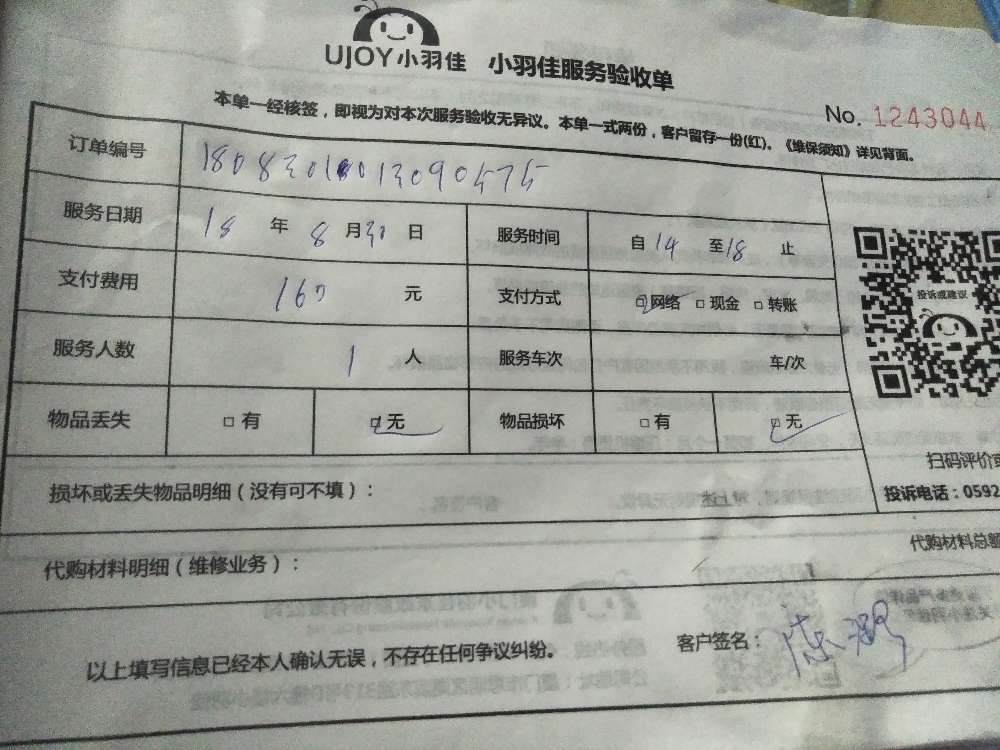 UJOY小羽佳 小羽佳服务验收单
No. 1243044
本单一经核签，即视为对本次服务验收无异议。本单一式两份，客户留存一份(红)。《维保须知》详见背面。
订单编号
服务日期 18 年 8 月 30 日 服务时间 自 14 至 18 止
支付费用 160 元 支付方式 □网络 □现金 □转账
服务人数 1 人 服务车次 车/次
物品丢失 □有 □无 物品损坏 □有 □无
投诉或建议
扫码评价或
投诉电话：0592
损坏或丢失物品明细（没有可不填）：
代购材料明细（维修业务）：
代购材料总额
以上填写信息已经本人确认无误，不存在任何争议纠纷。
客户签名：